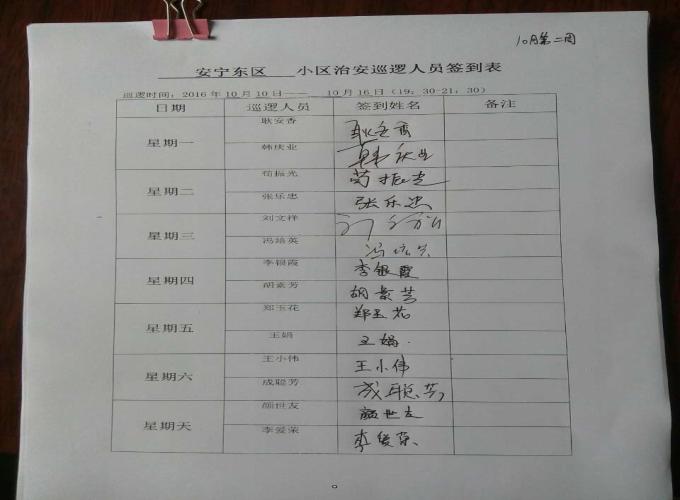 10月第二周
安宁东区 小区治安巡逻人员签到表
巡逻时间：2016年10月10日—— 10月16日（19：30-21：30）
日期 巡逻人员 签到姓名 备注
星期一 耿安香 耿安香
韩庆业 韩庆业
星期二 荀振光 荀振光
张乐忠 张乐忠
星期三 刘文祥 刘文祥
冯培英 冯培英
星期四 李银霞 李银霞
胡素芳 胡素芳
星期五 郑玉花 郑玉花
王娟 王娟
星期六 王小伟 王小伟
成聪芳 成聪芳
星期天 颜世友 颜世友
李爱荣 李爱荣